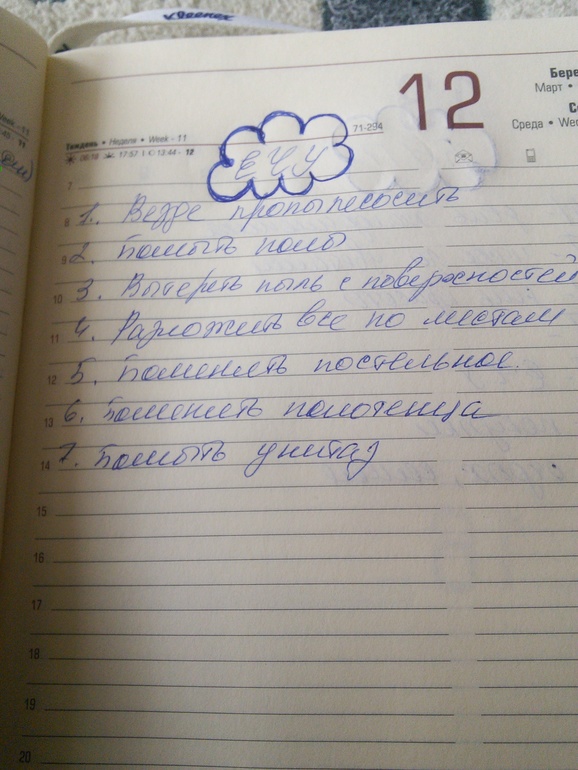 Kleenex
12
Бере
Март •
Се
Среда • Wed
Тиждень • Неделя • Week - 11
71-294
06:19 17:57 13:44 - 12
ЕЧУ
7
8 1. Везде пропылесосить
9 2. Помыть полы
10 3. Вытереть пыль с поверхностей
11 4. Разложить все по местам
12 5. Поменять постельное.
13 6. Поменять полотенца
14 7. Помыть унитаз
15
16
17
18
19
20